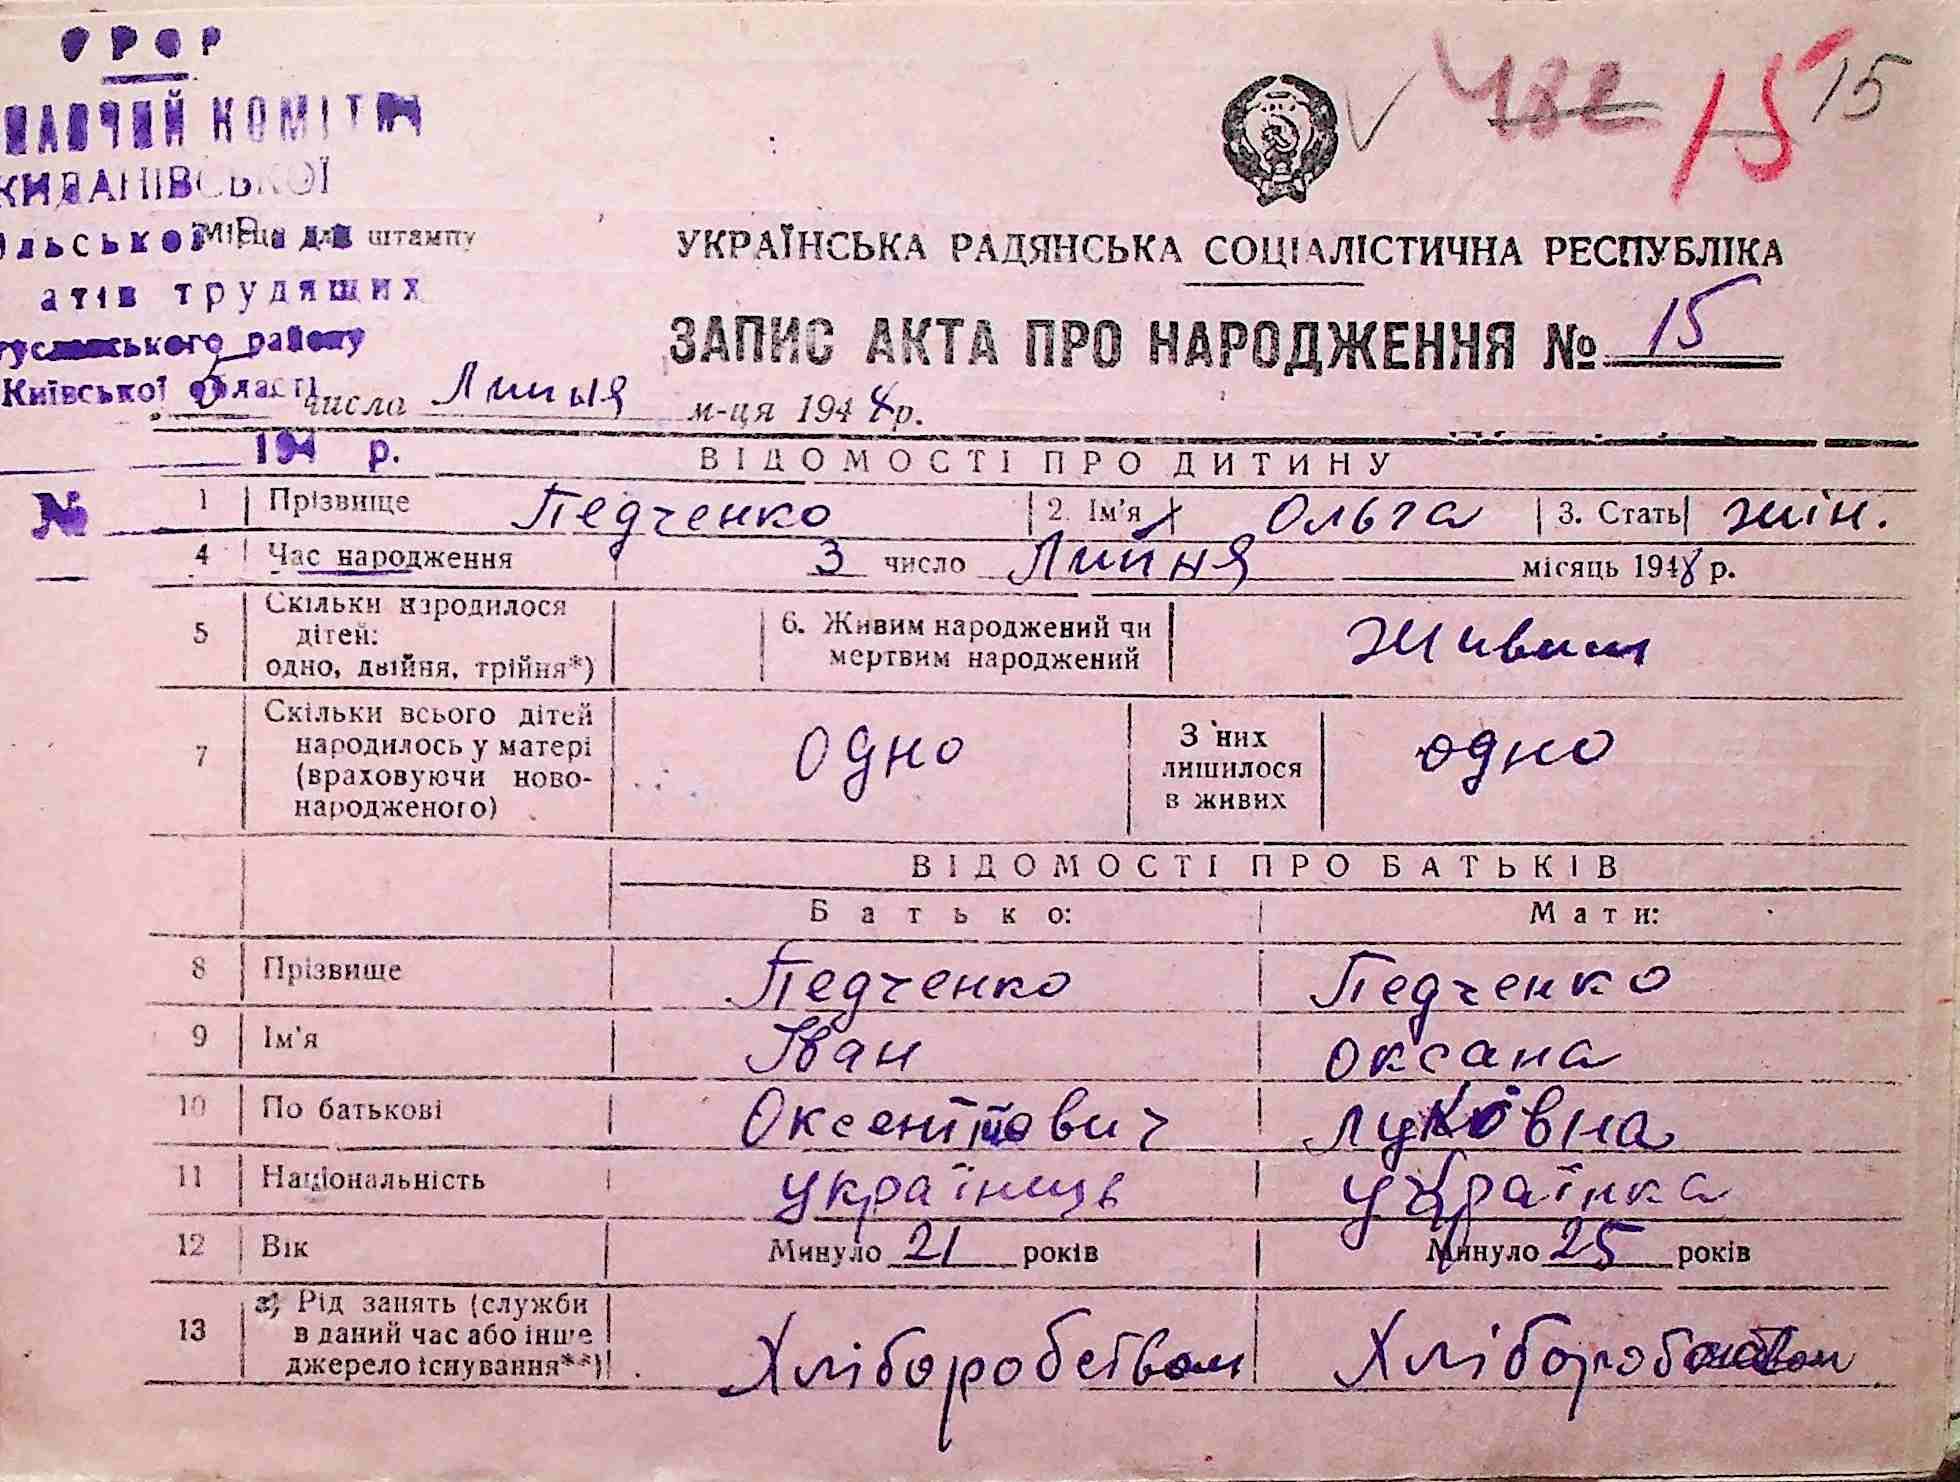 УРСР
КОМІТЕТ
КИДАНІВСЬКОЇ
Місце для штампу
трудящих
району
Київської області
194 р.
№
482 15 15
УКРАЇНСЬКА РАДЯНСЬКА СОЦІАЛІСТИЧНА РЕСПУБЛІКА
ЗАПИС АКТА ПРО НАРОДЖЕННЯ № 15
5 числа Липня м-ця 1948 р.
ВІДОМОСТІ ПРО ДИТИНУ
1 Прізвище Педченко 2. Ім'я Ольга 3. Стать жін.
4 Час народження 3 число Липня місяць 1948 р.
5 Скільки народилося
дітей:
одно, двійня, трійня*)
6. Живим народжений чи
мертвим народжений
Живим
7 Скільки всього дітей
народилось у матері
(враховуючи ново-
народженого)
одно
З них
лишилося
в живих
одно
ВІДОМОСТІ ПРО БАТЬКІВ
Батько: Мати:
8 Прізвище Педченко Педченко
9 Ім'я Іван Оксана
10 По батькові Оксентійович Луківна
11 Національність українець українка
12 Вік Минуло 21 років Минуло 25 років
13 а) Рід занять (служби
в даний час або інше
джерело існування**)
Хліборобством Хліборобством